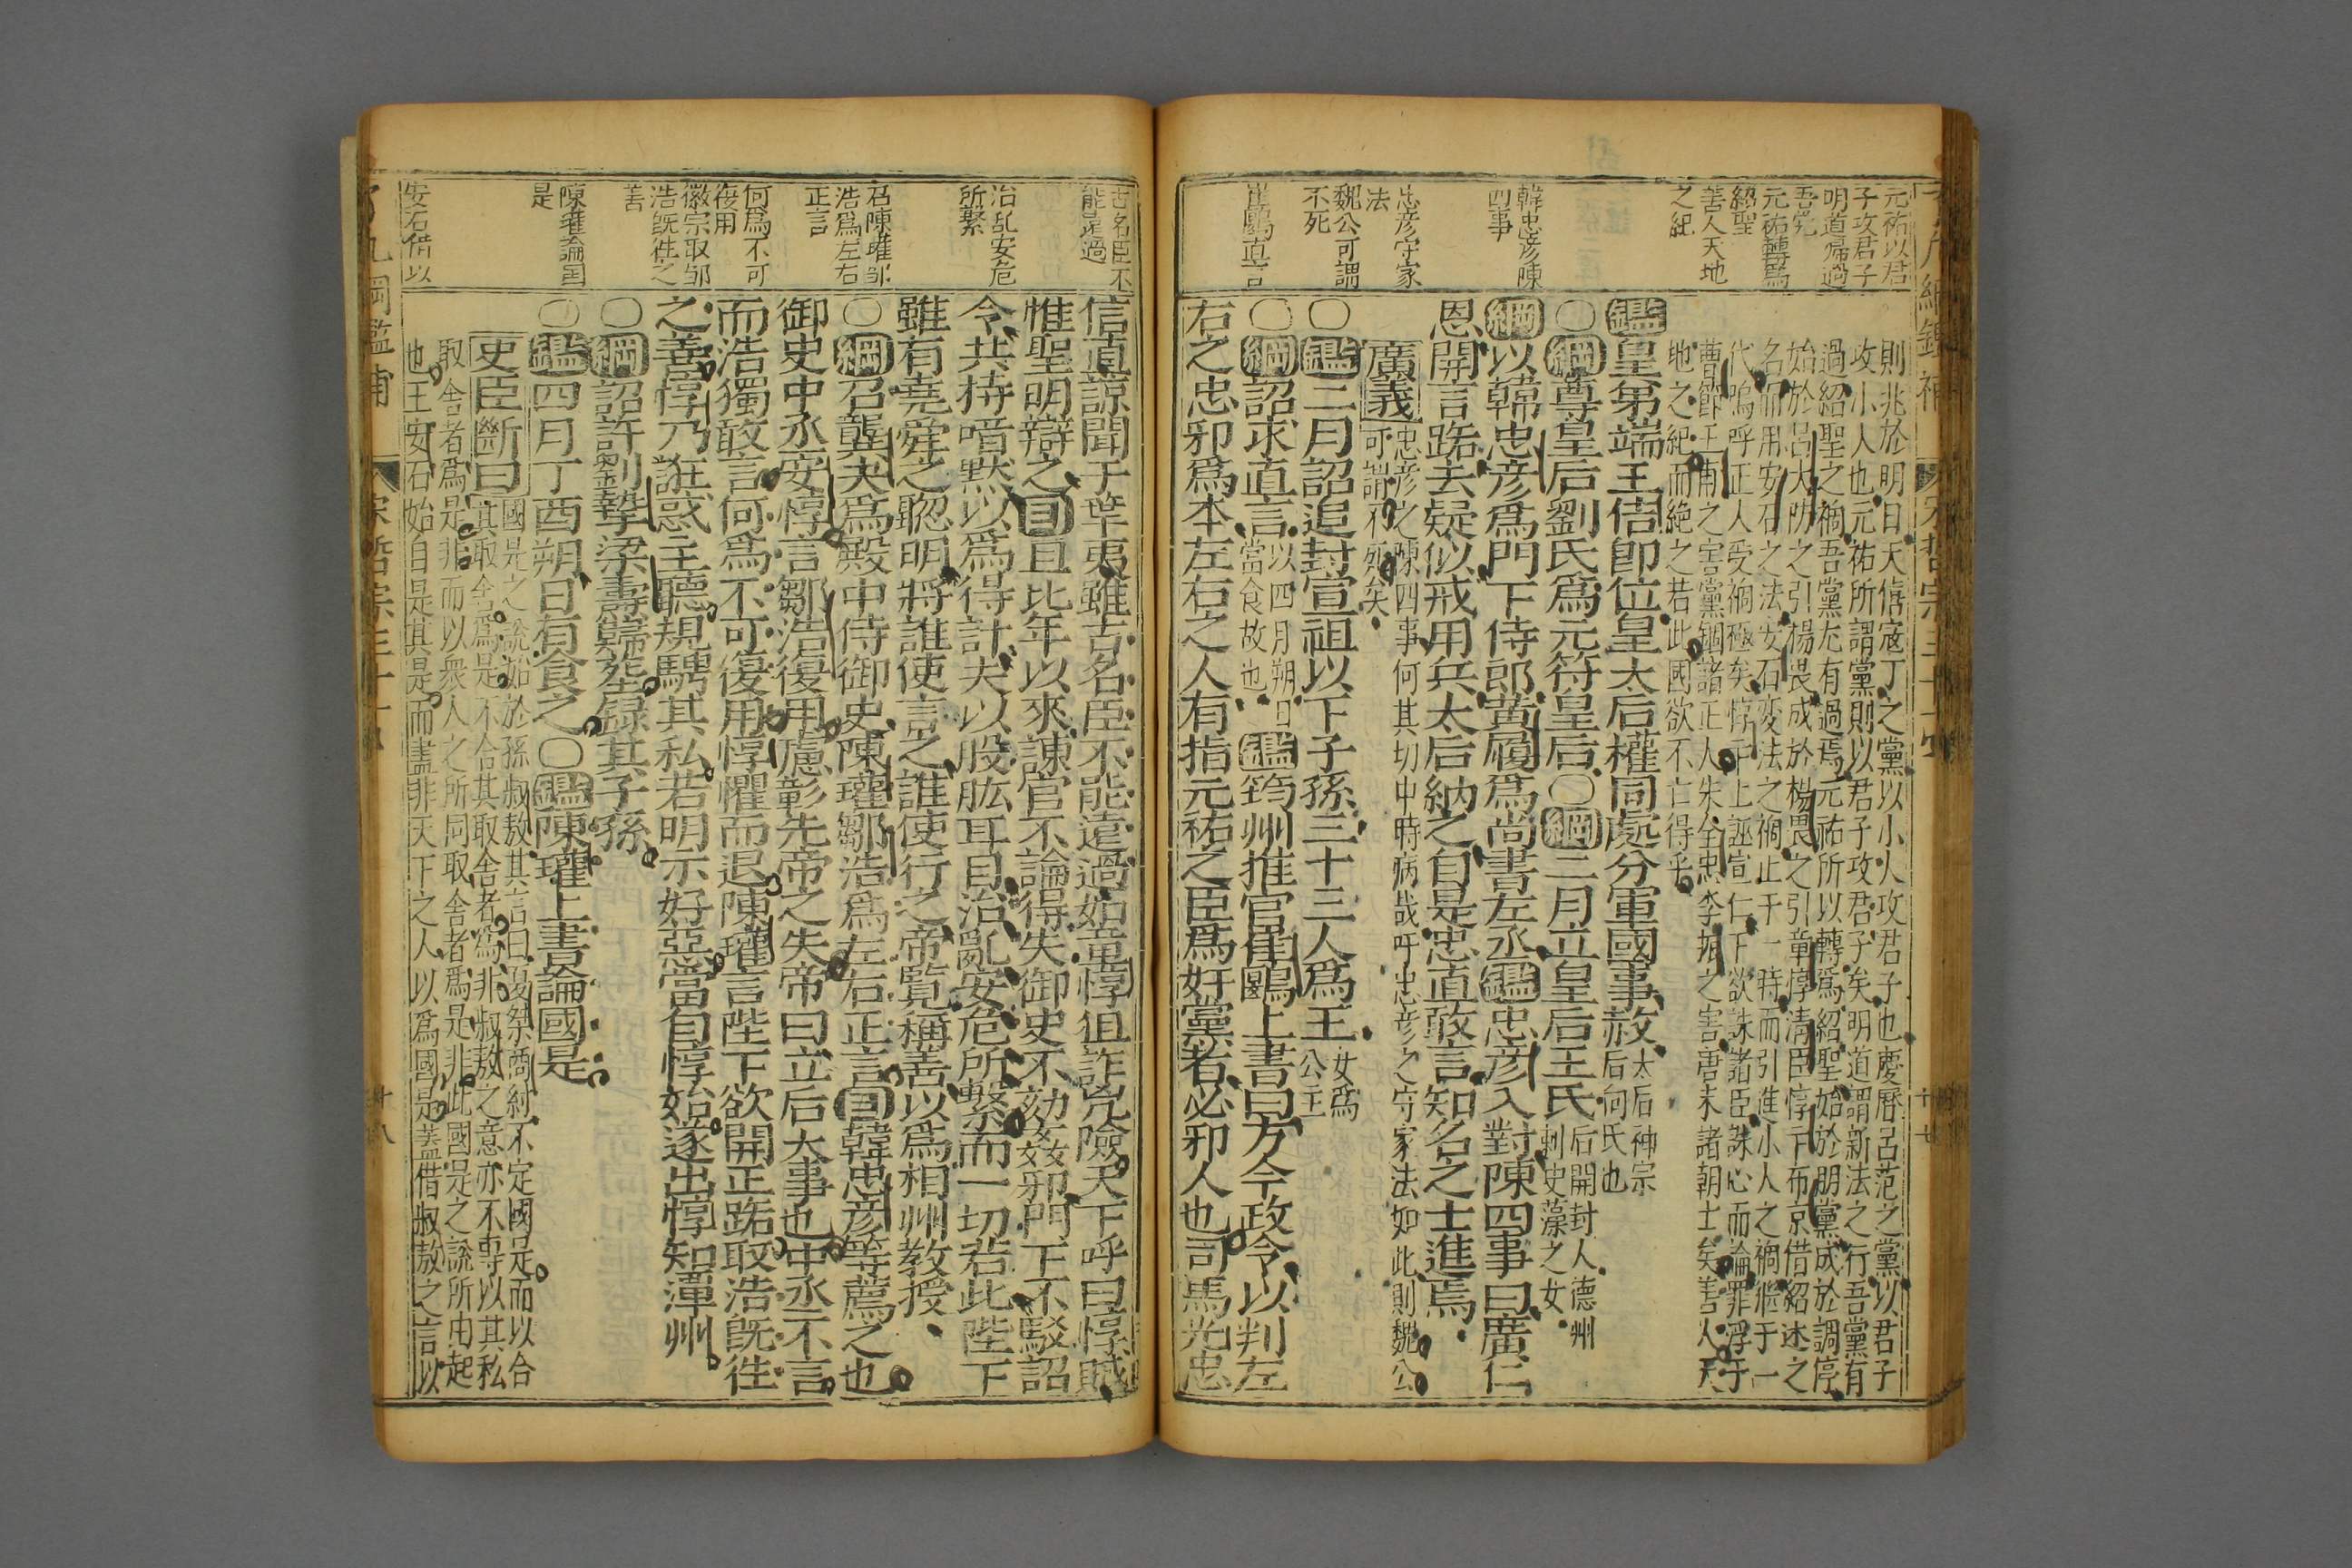 元祐以君
子攻君子
明道歸過
吾党
元祐轉爲
紹聖
善人天地
之紀
韓忠彦陳
四事
忠彦守家
法
魏公可謂
不死
崔鶠直言
則兆於明日天僖寇丁之黨以小人攻君子也慶曆呂范之黨以君子
攻小人也元祐所謂黨則以君子攻君子矣明道謂新法之行吾黨有
過紹聖之禍吾黨尤有過焉元祐所以轉爲紹聖始於朋黨成於調停
始於呂大防之引楊畏成於楊畏之引章惇清臣惇卞布京借紹述之
名而用安石之法安石変法之禍止于一時而引進小人之禍𢇁于一
代嗚呼正人受禍極矣惇卞上誣宣仁下欲誅諸臣誅心而論罪浮于
曹節王甫之害黨錮諸正人朱全忠李振之害唐末諸朝士矣善人天
地之紀而絶之若此國欲不亡得乎
鑑皇第端王佶卽位皇太后權同處分軍國事赦太后神宗
后向氏也
〇綱尊皇后劉氏爲元符皇后〇綱二月立皇后王氏后開封人德州
刺史藻之女
綱以韓忠彦爲門下侍郎黄履爲尚書左丞鑑忠彦入對陳四事曰廣仁
恩開言路去疑似戒用兵太后納之自是忠直敢言知名之士進焉
廣義忠彦之陳四事何其切中時病哉吁忠彦之守家法如此則魏公
可謂不死矣
〇鑑二月詔追封宣祖以下子孫三十三人爲王女爲
公主
〇綱詔求直言以四月朔日
當食故也鑑筠州推官崔鶠上書曰方今政令以判左
右之忠邪爲本左右之人有指元祐之臣爲奸黨者必邪人也司馬光忠
古名臣不
能遠過
治乱安危
所繫
召陳瓘邹
浩爲左右
正言
何爲不可
復用
徽宗取邹
浩旣徃之
善
陳瓘論国
是
安石借以
信直諒聞于華夷雖古名臣不能遠過如章惇狙詐兇險天下呼曰惇賊
惟聖明辯之目且比年以來諫官不論得失御史不劾姦邪門下不駁詔
令共持喑默以爲得計夫以股肱耳目治亂安危所繫而一切若此陛下
雖有堯舜之聦明將誰使言之誰使行之帝覧稱善以爲相州教授
〇綱召龔夬爲殿中侍御史陳瓘鄒浩爲左右正言目韓忠彦等薦之也
御史中丞安惇言鄒浩復用慮彰先帝之失帝曰立后大事也中丞不言
而浩獨敢言何爲不可復用惇懼而退陳瓘言陛下欲開正路取浩旣徃
之善惇乃誑惑主聽規騁其私若明示好惡當自惇始遂出惇知潭州
〇綱詔許劉摯梁壽歸葬録其子孫
〇鑑四月丁酉朔日有食之〇鑑陳瓘上書論國是
史臣斷曰國是之說始於孫叔敖其言曰夏桀商紂不定國是而以合
其取舍爲是不合其取舍者爲非叔敖之意亦不專以其私
取舍者爲是非而以衆人之所同取舍者爲是非此國是之說所由起
也王安石始自是其是而盡非天下之人以爲國是盖借叔敖之言以
十七
十八